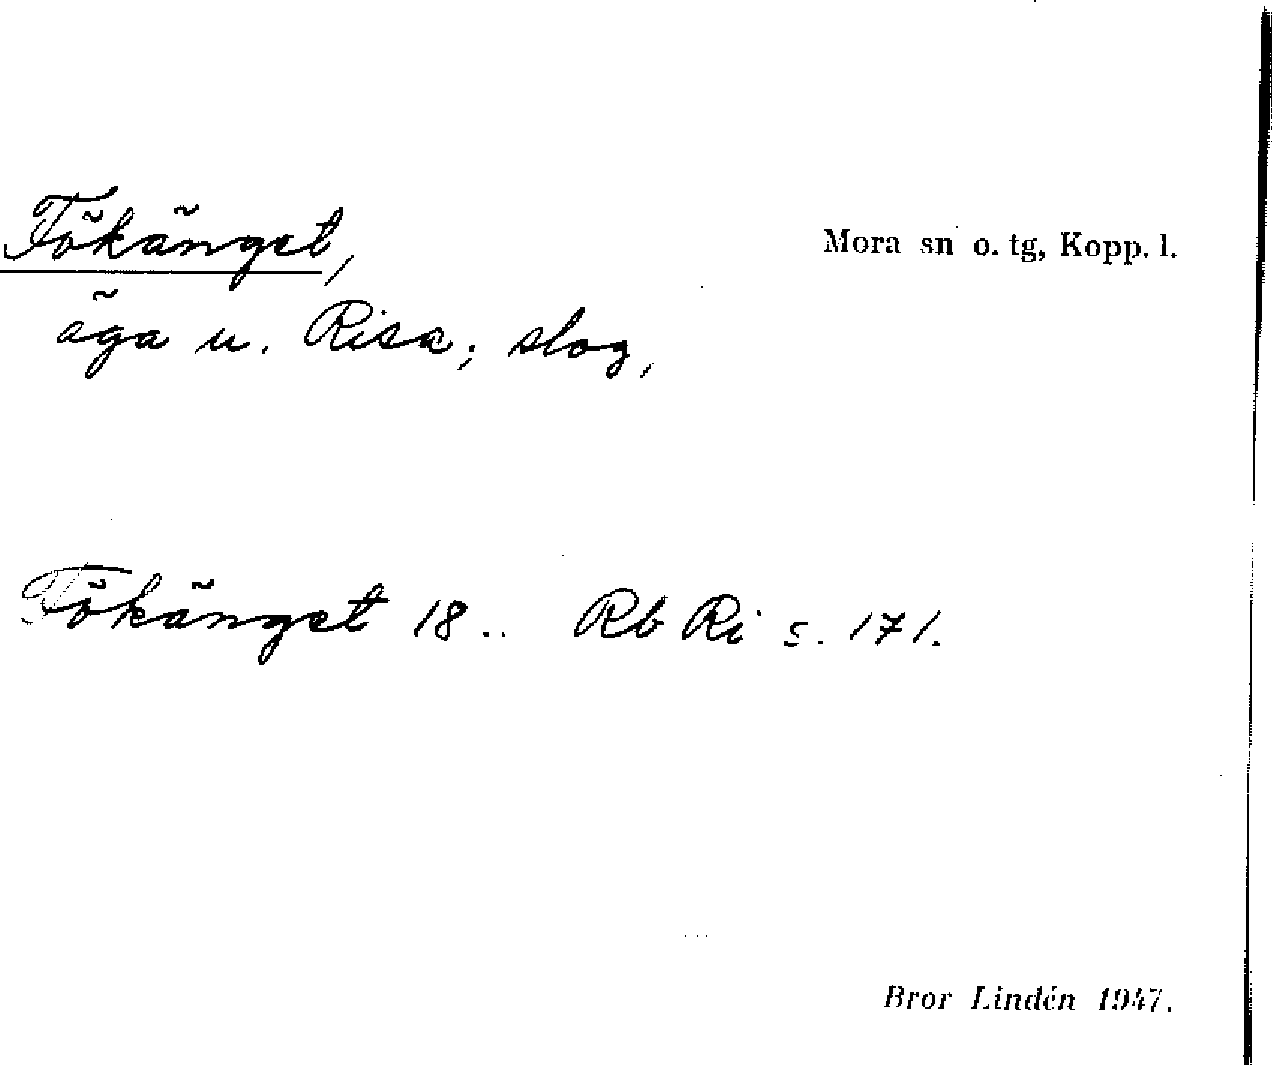 Fökänget, Mora sn o. tg, Kopp. l.
äga u. Risa; slog,
Fökänget 18.. Rb Ri s. 171.
Bror Lindén 1947.